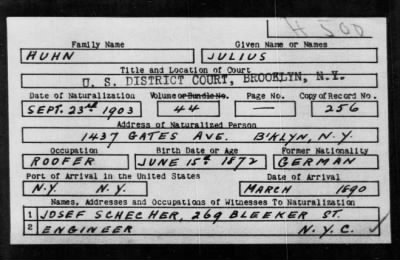 H 500
Family Name Given Name or Names
HUHN JULIUS
Title and Location of Court
U. S. DISTRICT COURT, BROOKLYN, N.Y.
Date of Naturalization Volume or Bundle No. Page No. Copy of Record No.
SEPT. 23rd 1903 44 — 256
Address of Naturalized Person
1437 GATES AVE. B'KLYN, N.Y.
Occupation Birth Date or Age Former Nationality
ROOFER JUNE 15th 1872 GERMAN
Port of Arrival in the United States Date of Arrival
N.Y. N.Y. MARCH 1890
Names, Addresses and Occupations of Witnesses To Naturalization
1 JOSEF SCHECHER, 269 BLEEKER ST.
2 ENGINEER N.Y.C.